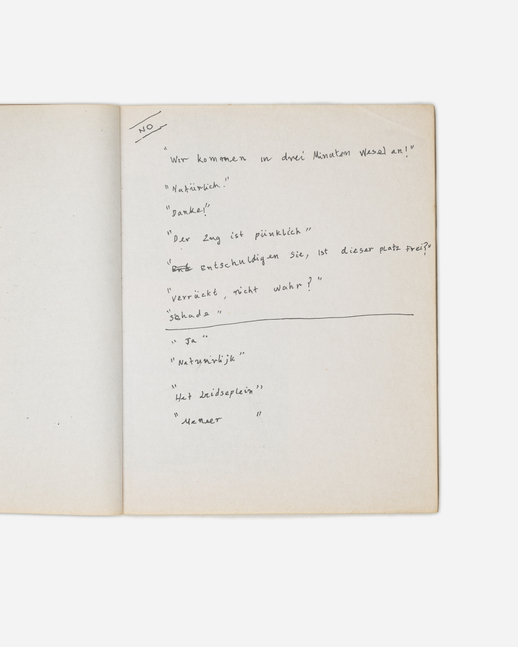 NO
"Wir kommen in drei Minuten Wesel an!"
"Natürlich!"
"Danke!"
"Der Zug ist pünklich"
"entschuldigen sie, ist dieser platz frei?"
"verrückt, nicht wahr?"
"schade"
"Ja"
"Natuurlijk"
"Het Leidseplein"
"Meneer "